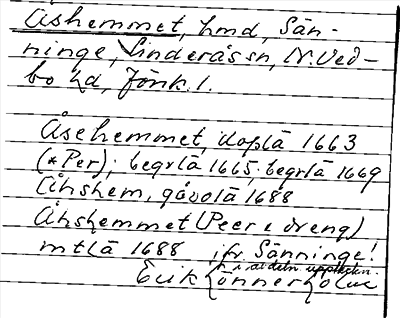 Åshemmet, hmd, Sän-
ninge, Linderås sn, N. Ved-
bo hd, Jönk. l.
Åsehemmet, doplä 1663
(*Per); begrlä 1665; begrlä 1669
Åhshem, gåvolä 1688
Åhshemmet (Peer i dreng)
mtlä 1688 jfr Sänninge!
Erik